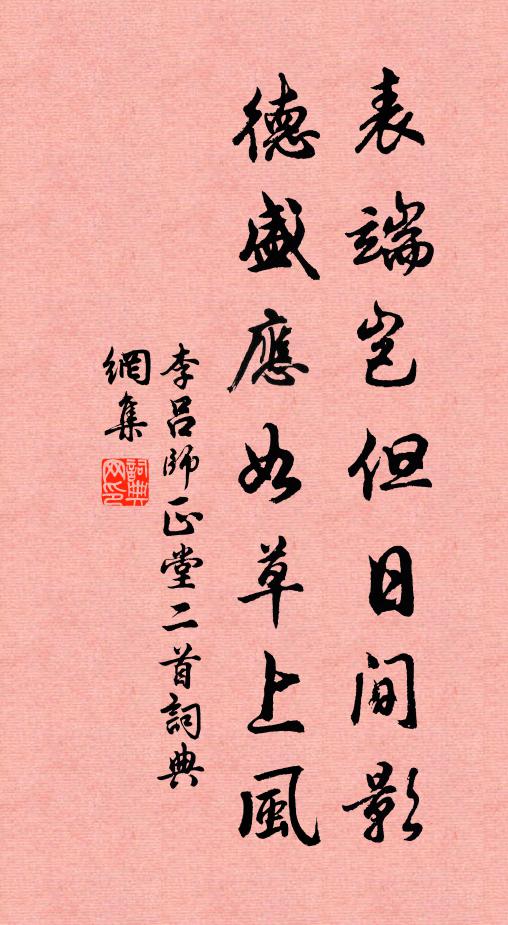 表端岂但日间影
德盛應如草上風
李吕師正堂二首詞典
網集
詞典网印